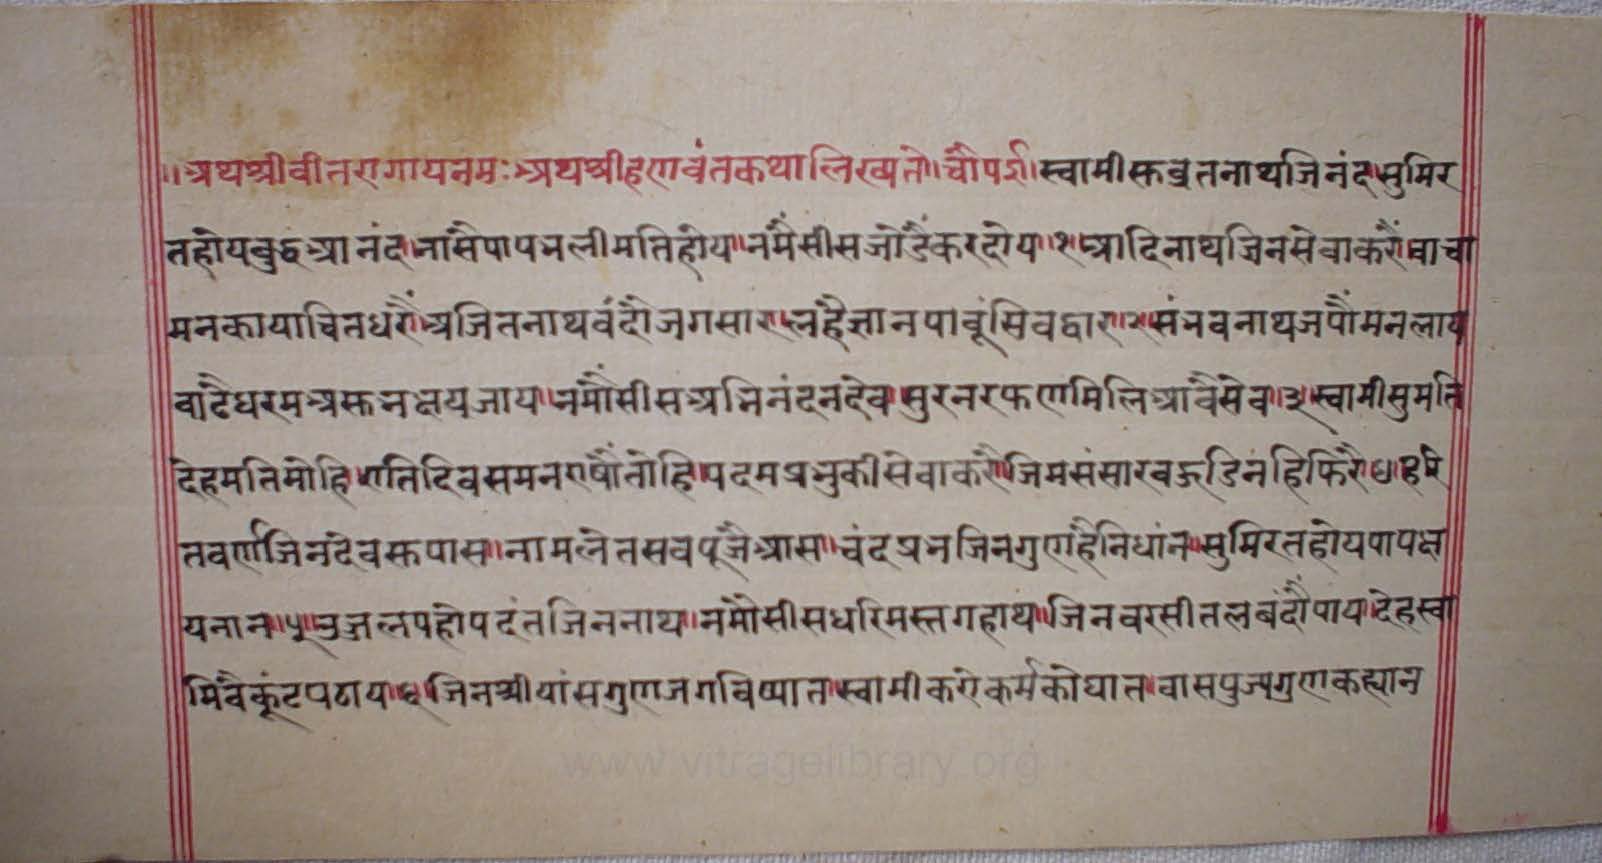 ॥अथश्रीवीतरागायनमः॥अथश्रीहणवंतकथालिख्यते॥चौपई॥स्वामीसुव्रतनाथजिनंद॥सुमिर
तहोयबुद्धआनंद॥नासैपापभलीमतिहोय॥नमैसीसजोडैकरदोय॥१॥आदिनाथजिनसेवाकरौं॥वाचा
मनकायाचितधरौं॥अजितनाथवंदौजगसार॥लहैज्ञानपावूंसिवद्वार॥२॥संभवनाथजपौंमनलाय
वाटैधरमअसुभक्षयजाय॥नमौंसीसअभिनंदनदेव॥सुरनरफणमिलिआवैसेव॥३॥स्वामीसुमति
देहमतिमोहि॥रातिदिवसमनराषौंतोहि॥पदमप्रभुकीसेवाकरौं॥जिमसंसारबऊडिनंहिफिरौं॥४॥हरि
तवर्णजिनदेवसुपास॥नामलेतसवपूजैआस॥चंदप्रभजिनगुणहैनिधांन॥सुमिरतहोयपापक्ष
यनान॥५॥उजलपहोपदंतजिननाथ॥नमौंसीसधरिमस्तगहाथ॥जिनवरसीतलबंदौंपाय॥देहस्वा
मिवैकूंटपठाय॥६॥जिनश्रीयांसगुणजगविष्यात॥स्वामीकरोकर्मकोघात॥वासपुज्यगुणकह्यान
www.vitragelibrary.org